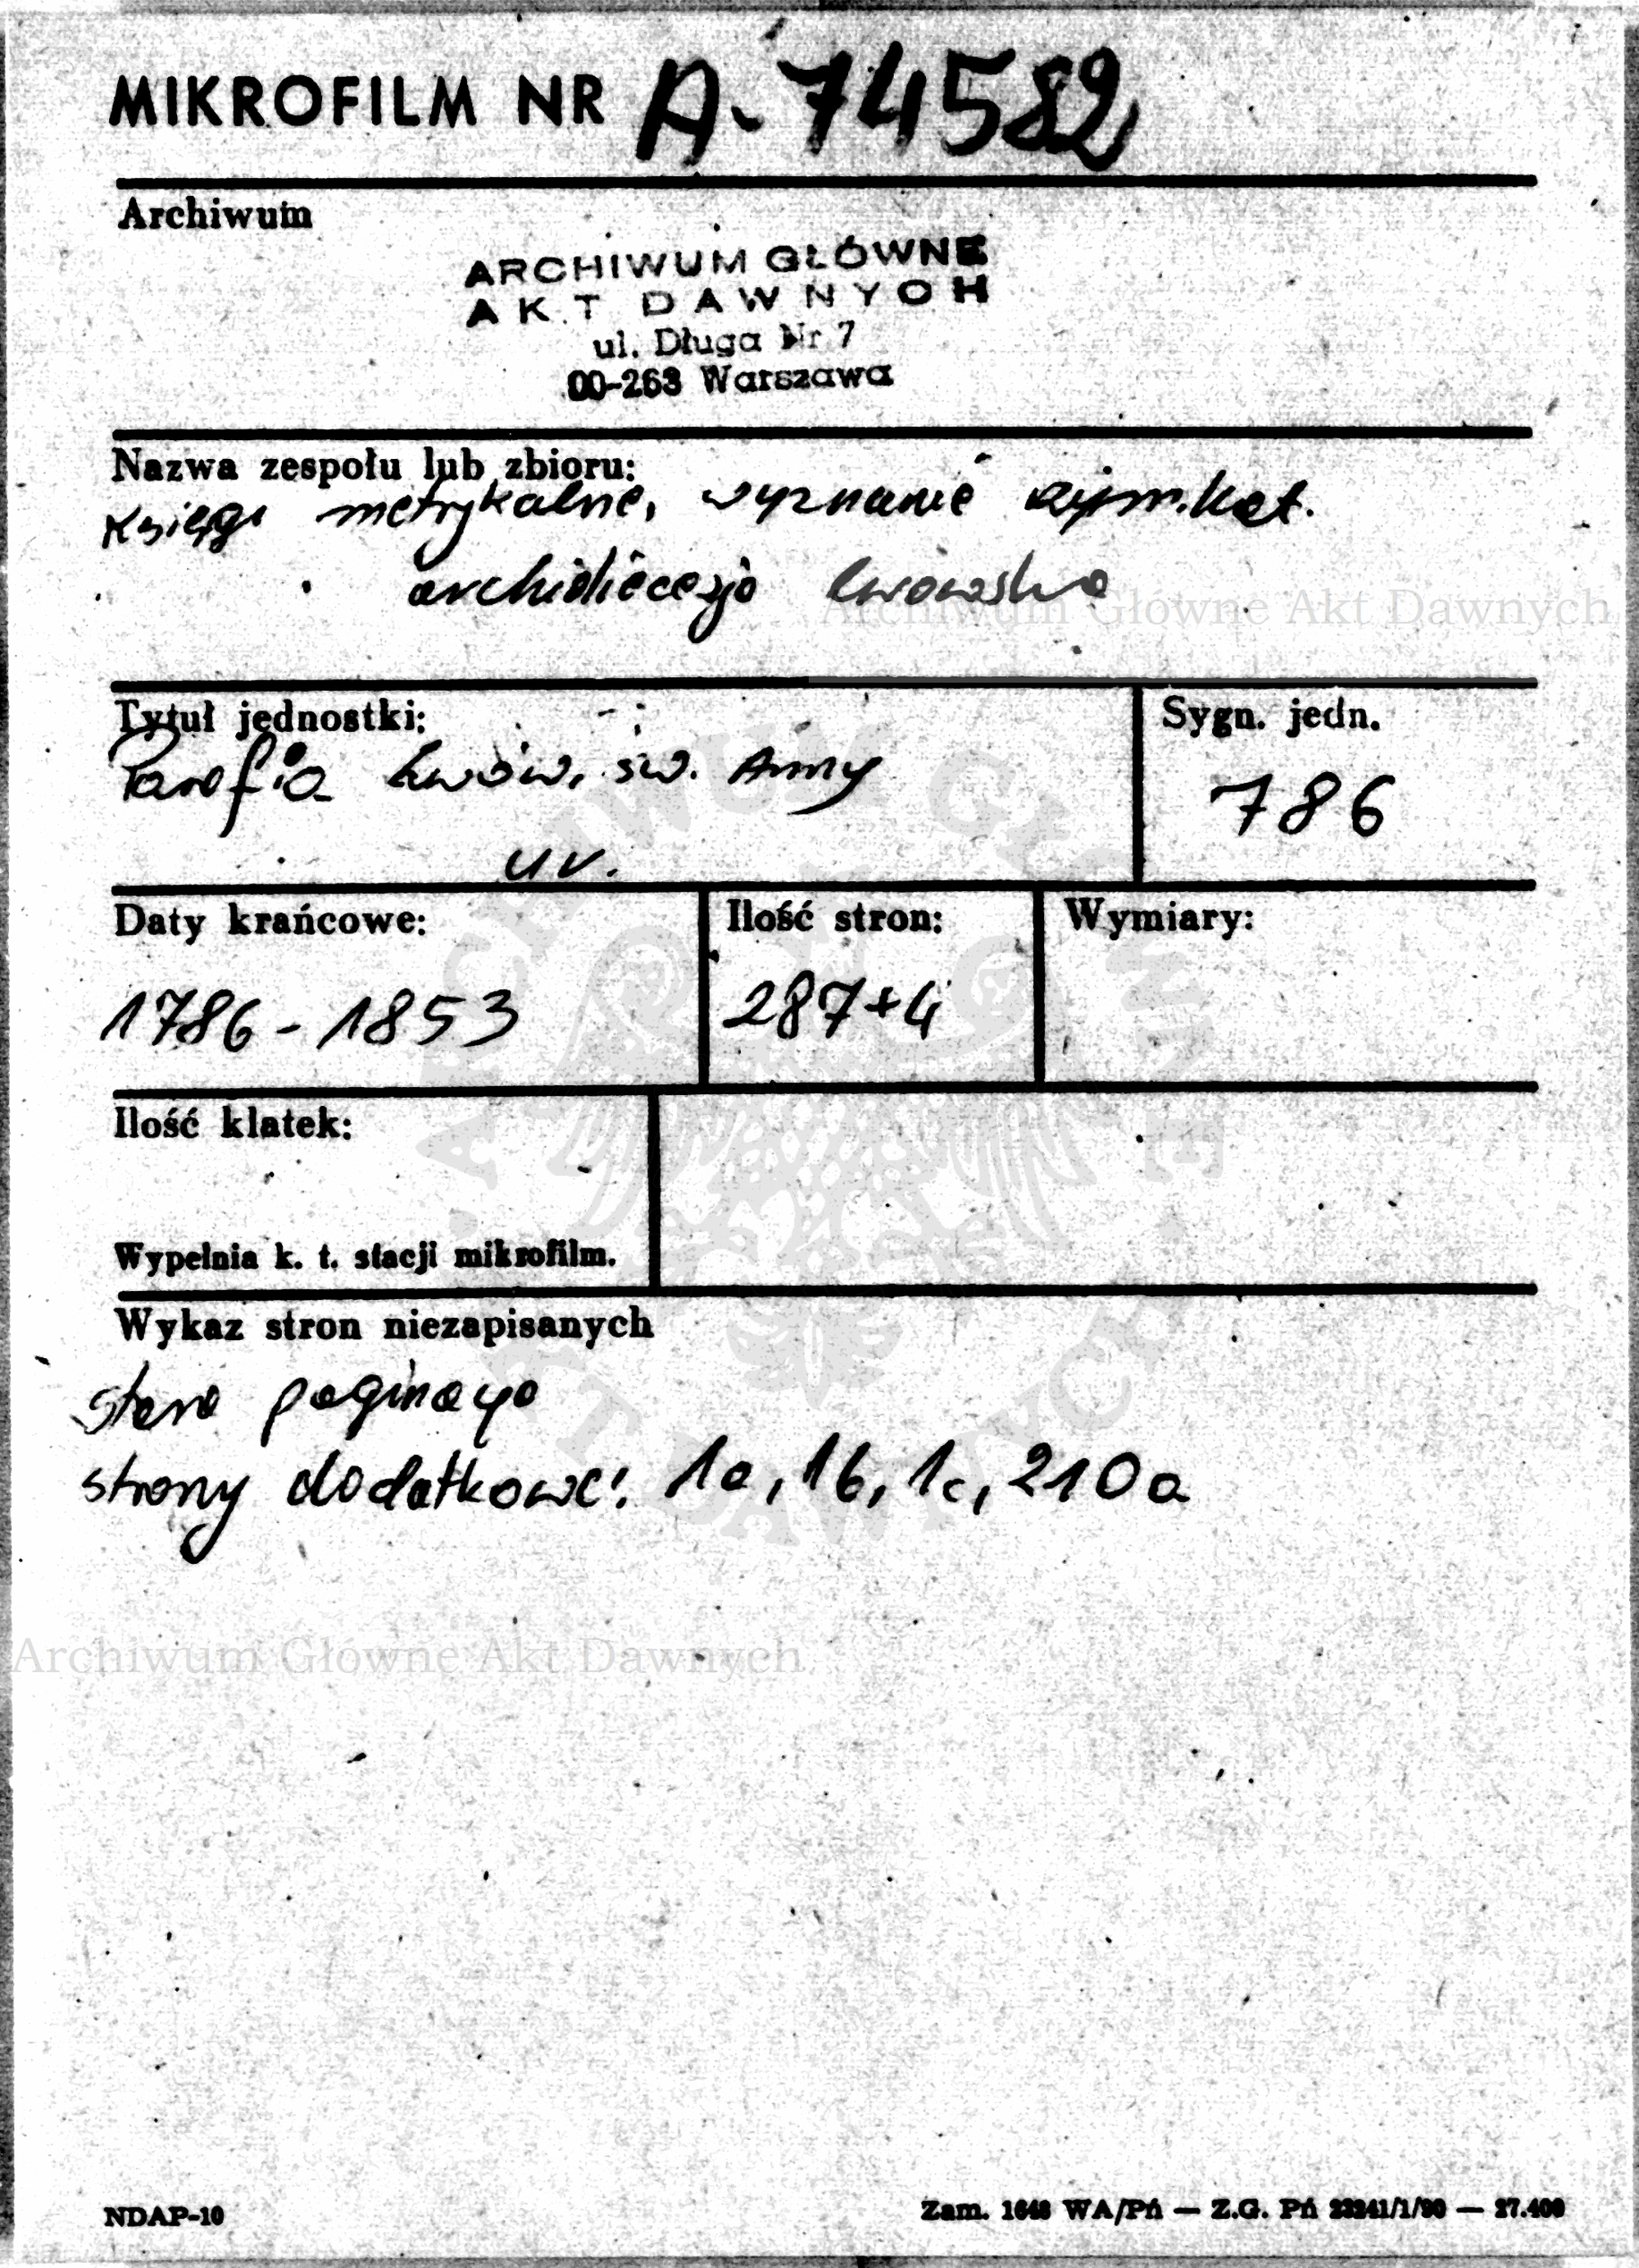 MIKROFILM NR A-74582
Archiwum
ARCHIWUM GŁÓWNE
AKT DAWNYCH
ul. Długa Nr 7
00-263 Warszawa
Nazwa zespołu lub zbioru:
Księgi metrykalne, wyznanie rzym.kat.
archidiecezja lwowska
Archiwum Główne Akt Dawnych
Tytuł jednostki:
Parafia Lwów, św. Anny
ur.
Sygn. jedn.
786
Daty krańcowe:
1786 - 1853
Ilość stron:
287+4
Wymiary:
Ilość klatek:
Wypełnia k. t. stacji mikrofilm.
Wykaz stron niezapisanych
stara paginacja
strony dodatkowe: 1a, 1b, 1c, 210a
Archiwum Główne Akt Dawnych
ARCHIWUM GŁÓWNE
AKT DAWNYCH
NDAP-10
Zam. WA/Pń — Z.G. Pń — 27.400